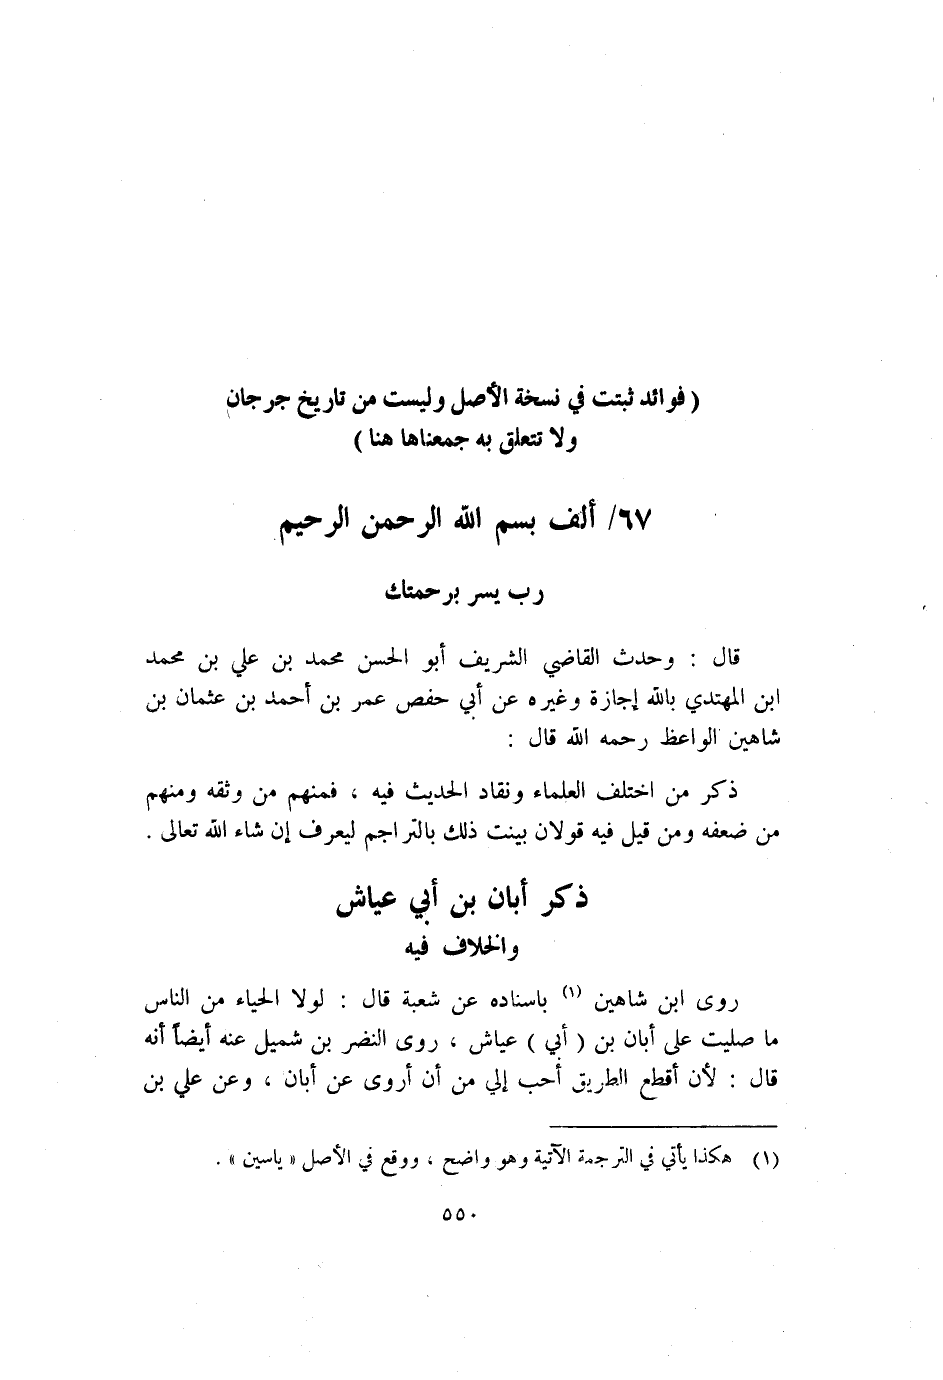 ( فوائد ثبتت في نسخة الأصل وليست من تاريخ جرجان
ولا تتعلق به جمعناها هنا )
٦٧/ ألف بسم الله الرحمن الرحيم
رب يسر برحمتك
قال : وحدث القاضي الشريف أبو الحسن محمد بن علي بن محمد
ابن المهتدي بالله إجازة وغيره عن أبي حفص عمر بن أحمد بن عثمان بن
شاهين الواعظ رحمه الله قال :
ذكر من اختلف العلماء ونقاد الحديث فيه ، فمنهم من وثقه ومنهم
من ضعفه ومن قيل فيه قولان بينت ذلك بالتراجم ليعرف إن شاء الله تعالى .
ذكر أبان بن أبي عياش
والخلاف فيه
روى ابن شاهين (١) باسناده عن شعبة قال : لولا الحياء من الناس
ما صليت على أبان بن ( أبي ) عياش ، روى النضر بن شميل عنه أيضاً أنه
قال : لأن أقطع الطريق أحب إلي من أن أروى عن أبان ، وعن علي بن
(١) هكذا يأتي في الترجمة الآتية وهو واضح ، ووقع في الأصل « ياسين » .
٥٥٠